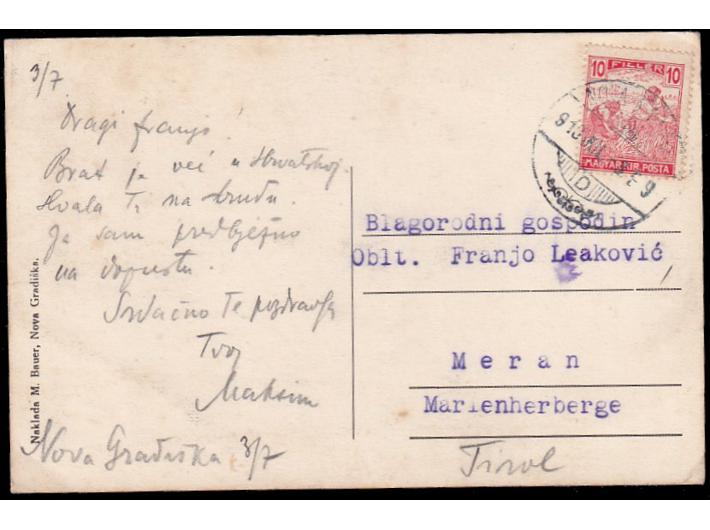 3/7
Dragi Franjo!
Brat je već u Hrvatskoj.
Hvala Ti na trudu.
Ja sam predbježno
na dopustu.
Srdačno Te pozdravlja
Tvoj
Maksim
Nova Gradiška 3/7
Naklada M. Bauer, Nova Gradiška.
10 FILLÉR 10
MAGYAR KIR. POSTA
Blagorodni gospodin
Oblt. Franjo Leaković
Meran
Marienherberge
Tirol